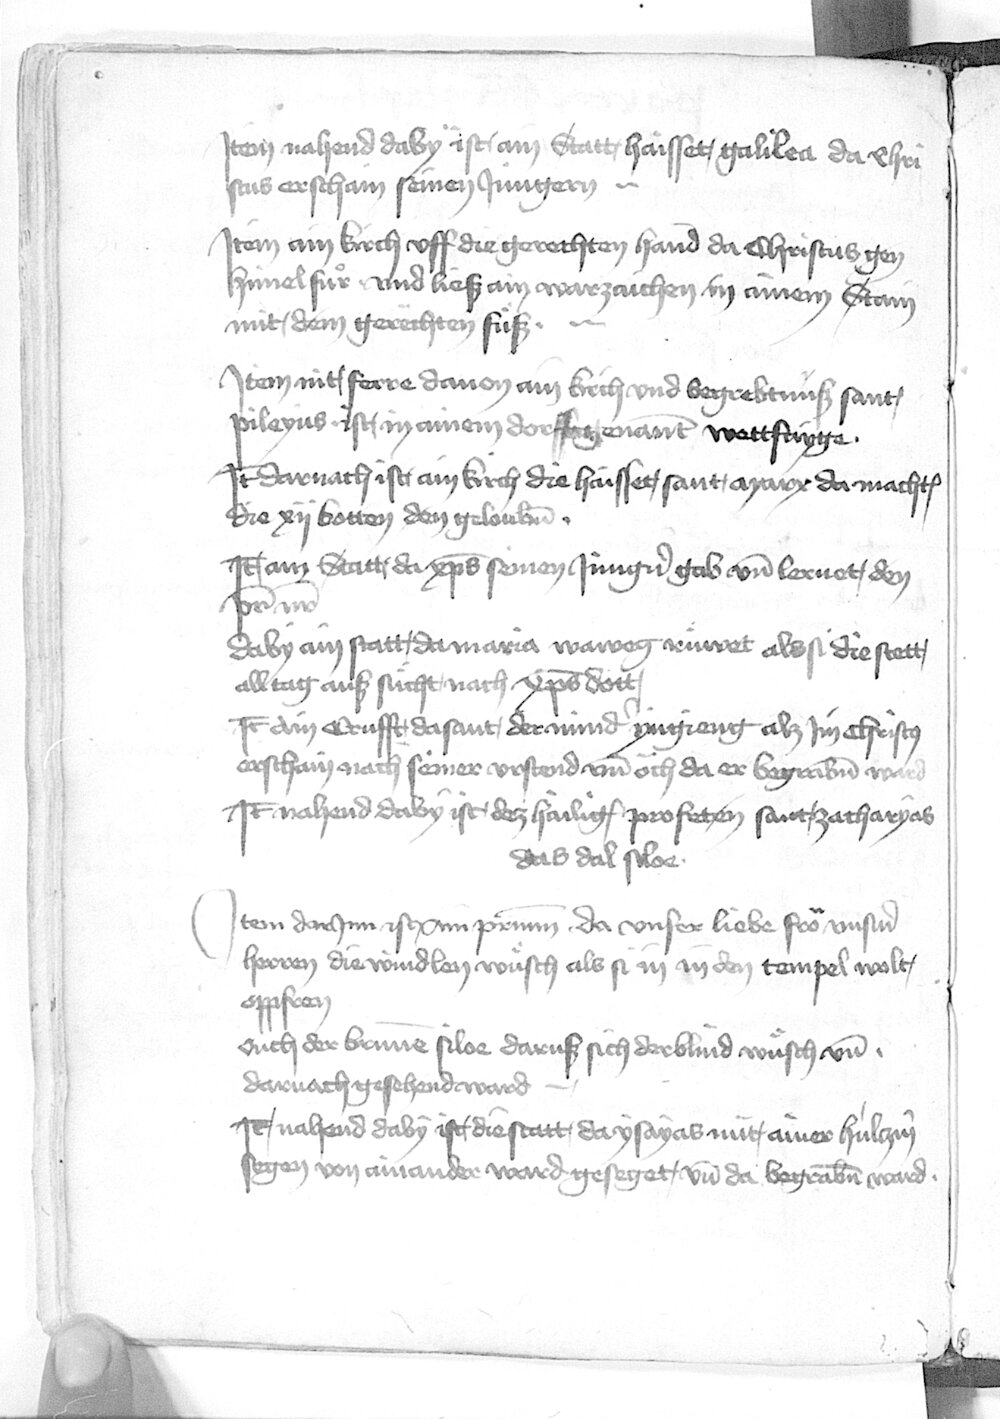 Item nahend daby ist ain Statt haisset galilea da Chri
stus erschain seinen Jungern
Item ain kirch uff die gerechten hand da Christus gen
himel fůr und ließ ain warzaichen in ainem Stain
mit dem gerechten fůß.
Item nit ferre davon ain kirch und begrebtnuß sant
pileyus ist in ainem dorff genant wettfayge.
It darnach ist ain kirch die haisset sant marx da macht
die xij botten den geloubn.
It ain Statt da xps seinen Jungern gab un lernet den
pr nr
daby ain statt da maria waweg růwet als si die stett
all tag auß sůcht nach xps dott
It ain Crufft da sant der mind yngieng alz Im Christus
erschain nach seiner urstend un och da er begrabn ward
It nahend daby ist dez hailig profeten sant zacharyas
das dal siloe.
Item darInn ist ain prunn da unser liebe frö unsern
herren die windlen wůsch als si in in den tempel wolt
oppfren
ouch der brunne siloe daruß sich der blind wůsch un.
darnach gesehend ward
It nahend daby ist die statt da ysayas mit ainer hulzin
segen von ainander ward geseget un da begrabn ward.